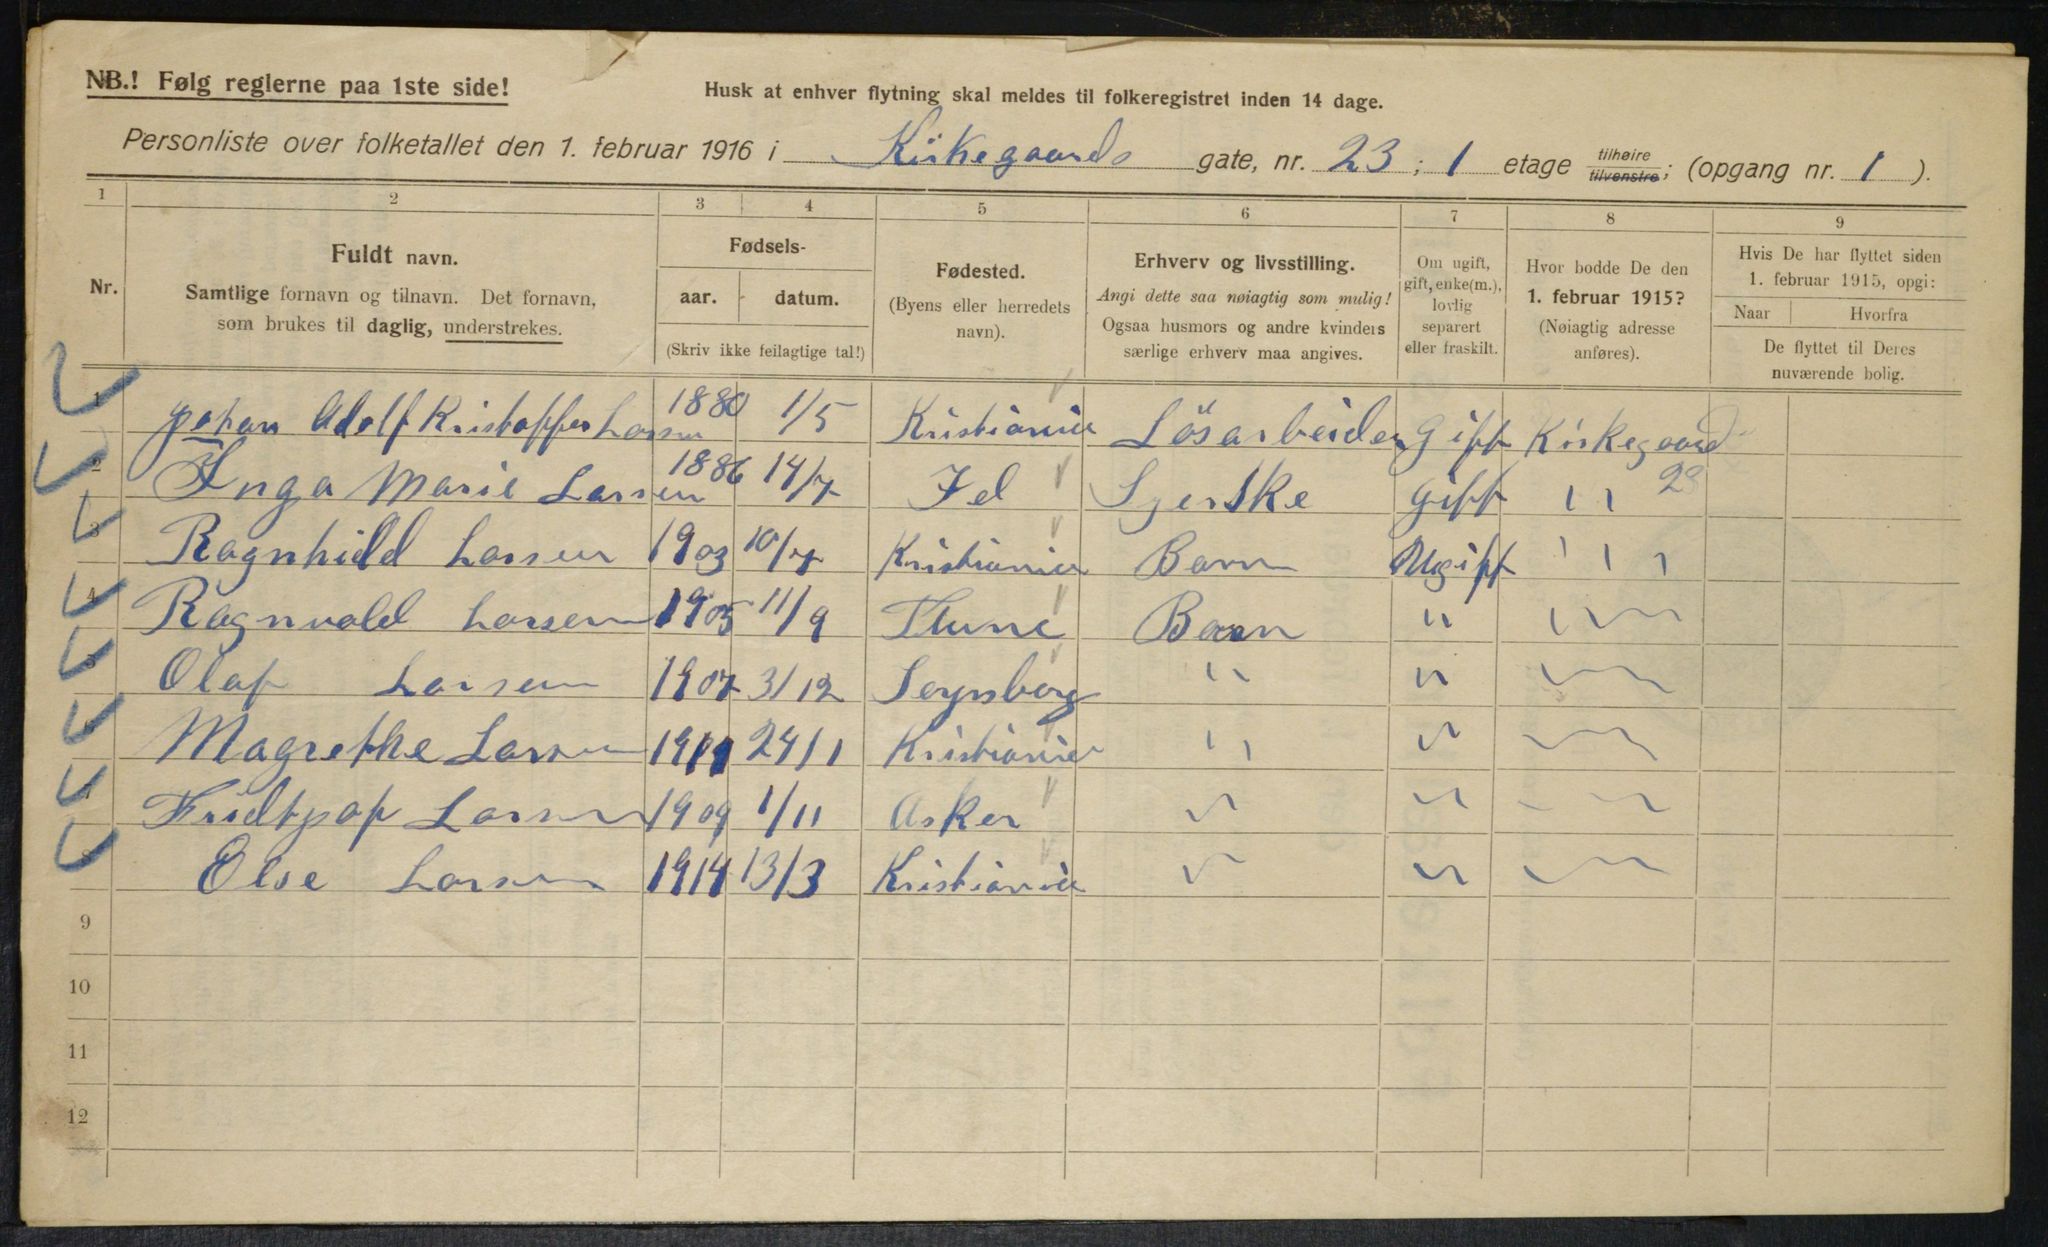 NB.! Følg reglerne paa 1ste side!
Husk at enhver flytning skal meldes til folkeregistret inden 14 dage.
Personliste over folketallet den 1. februar 1916 i Kirkegaards gate, nr. 23 ; 1 etage tilhøire tilvenstre; (opgang nr. 1 ).
1 2 3 4 5 6 7 8 9
Nr.
Fuldt navn.
Samtlige fornavn og tilnavn. Det fornavn,
som brukes til daglig, understrekes.
Fødsels-
aar. datum.
(Skriv ikke feilagtige tal!)
Fødested.
(Byens eller herredets
navn).
Erhverv og livsstilling.
Angi dette saa nøiagtig som mulig!
Ogsaa husmors og andre kvinders
særlige erhverv maa angives.
Om ugift,
gift, enke(m.),
lovlig
separert
eller fraskilt.
Hvor bodde De den
1. februar 1915?
(Nøiagtig adresse
anføres).
Hvis De har flyttet siden
1. februar 1915, opgi:
Naar Hvorfra
De flyttet til Deres
nuværende bolig.
1 Johan Adolf Kristoffer Larsen 1880 1/5 Kristiania Lösarbeider Gift Kirkegaard
2 Inga Marie Larsen 1886 14/7 Syerske Gift " 23
3 Ragnhild Larsen 1903 10/7 Kristiania Barn Ugift " "
4 Ragnvald Larsen 1905 11/9 Tune Barn " "
5 Olaf Larsen 1907 3/12 Sarpsborg " " "
6 Magrethe Larsen 24/1 Kristiania " " "
7 Fridtjof Larsen 1909 1/11 Asker " " "
8 Else Larsen 1914 13/3 Kristiania " " "
9
10
11
12